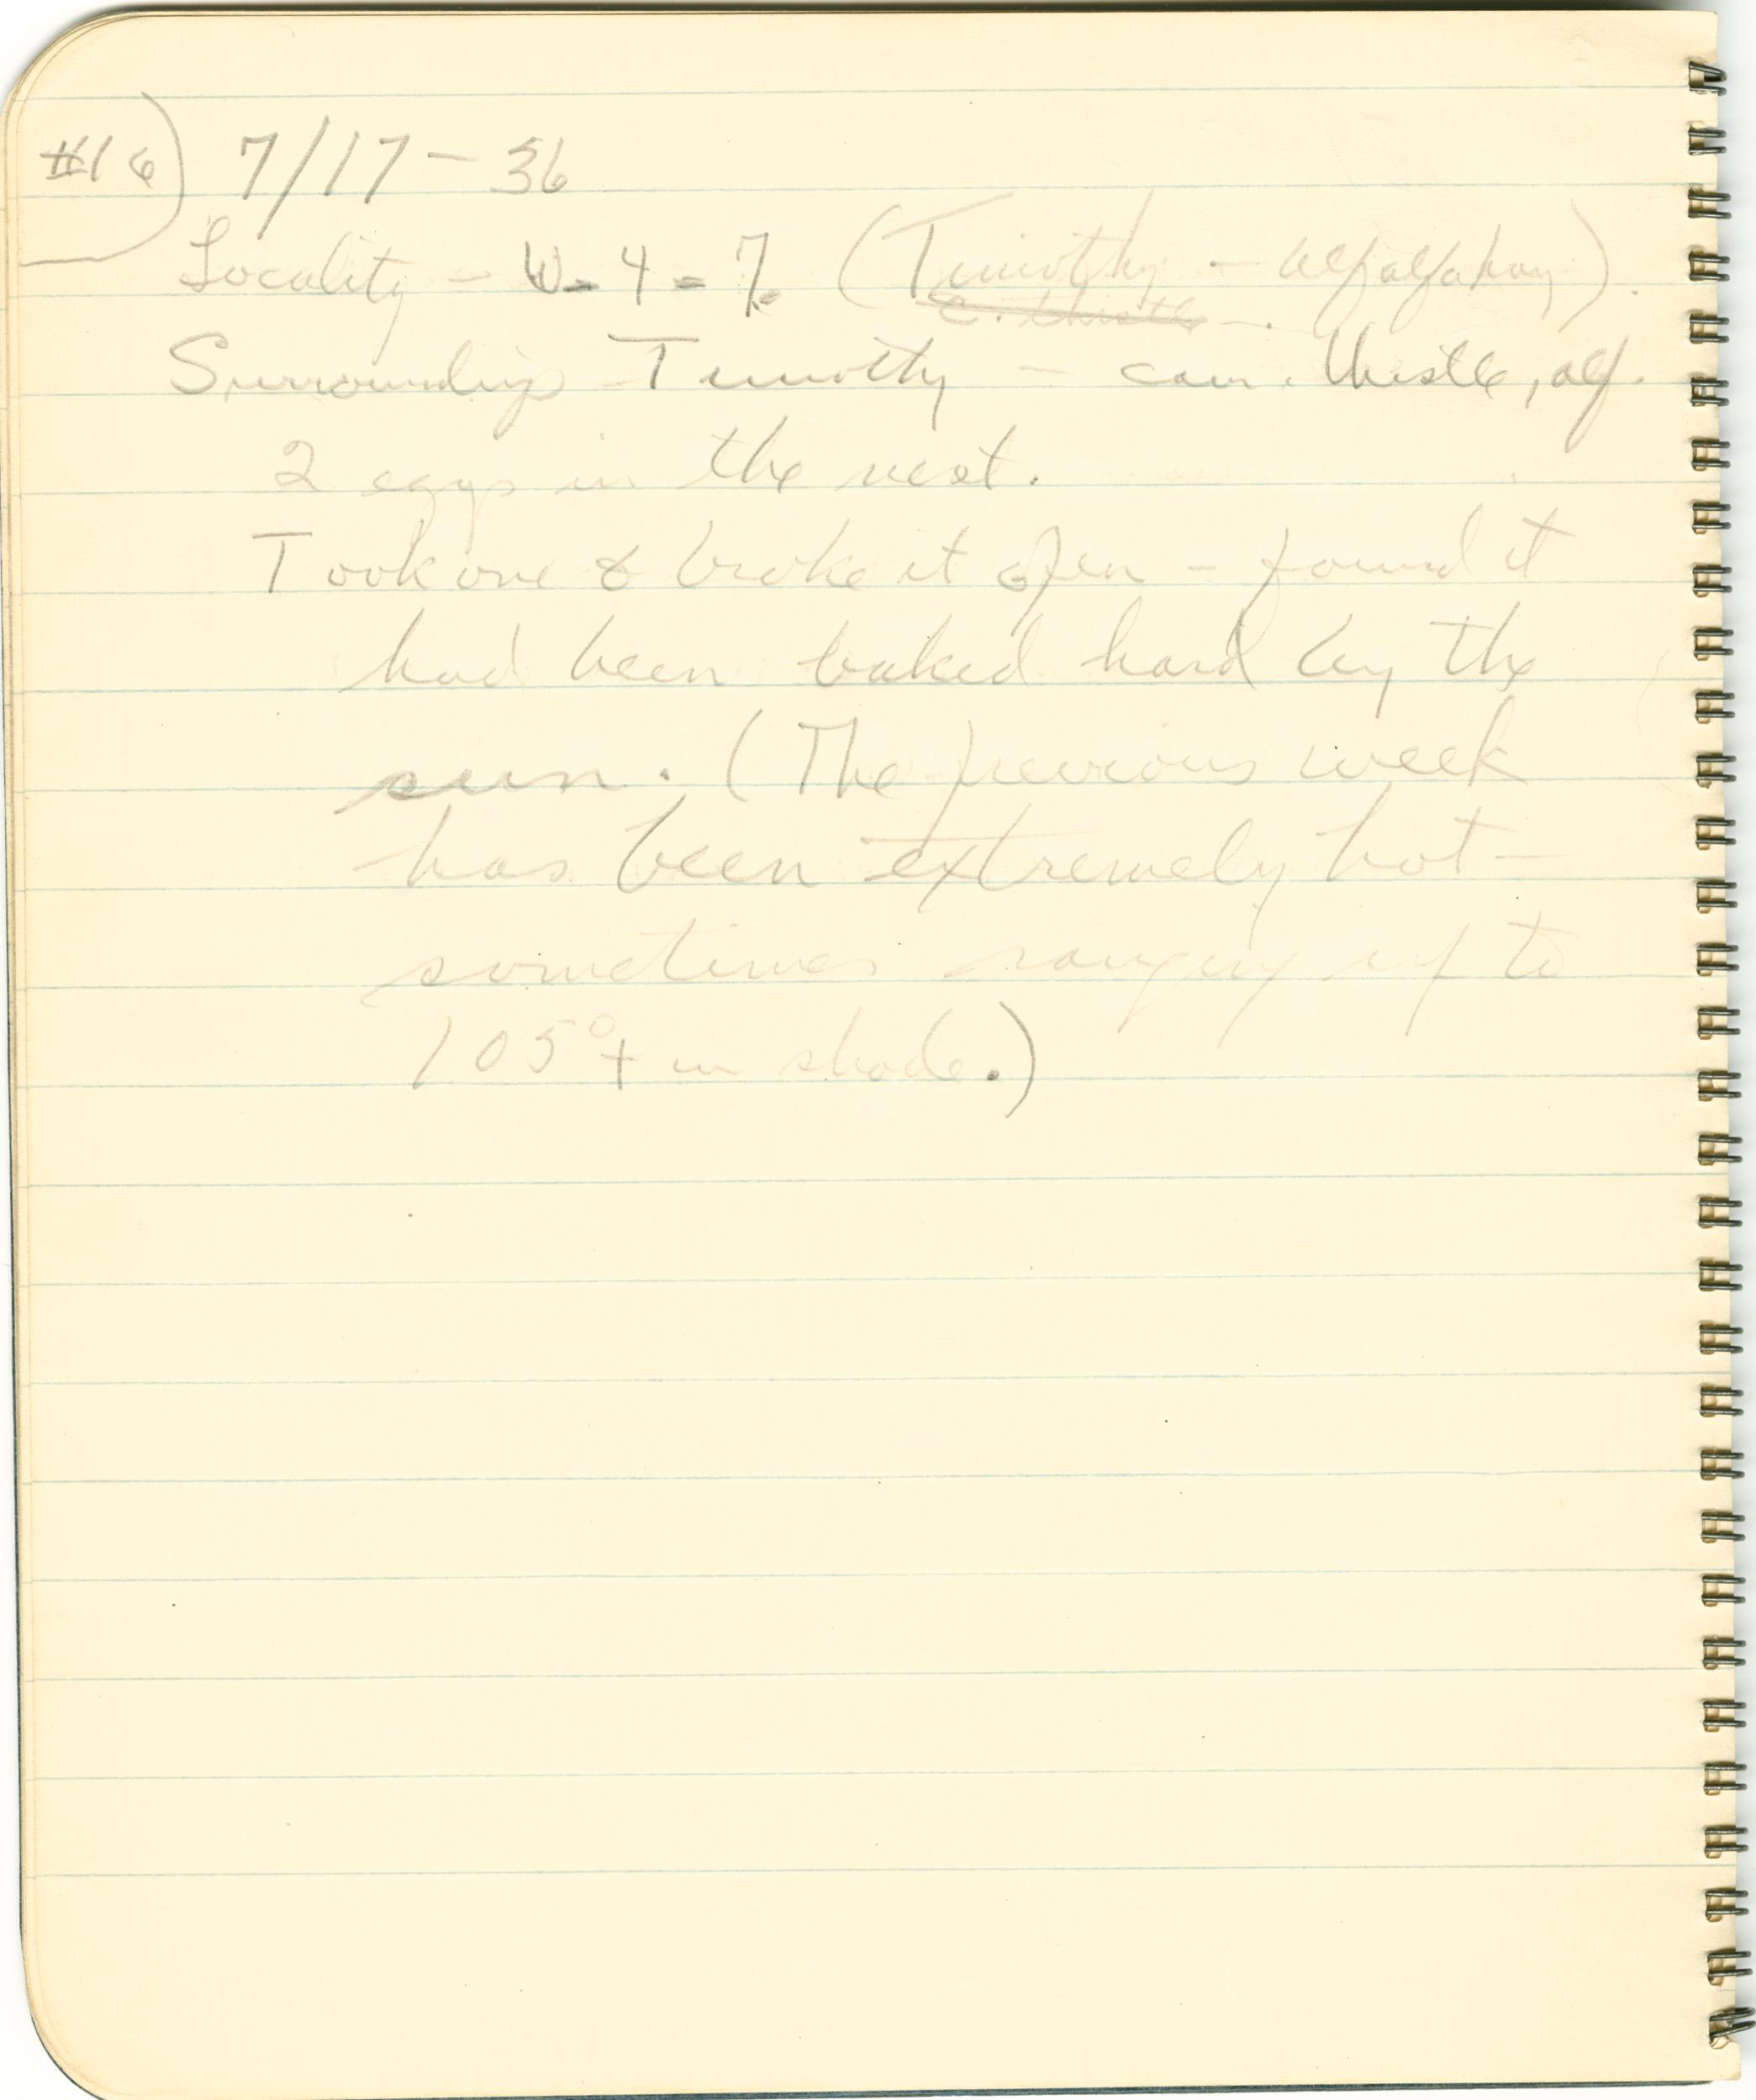 #16) 7/17-36
Locality - W-4-7. (Timothy - alfalfa hay).
C. thistle
Surroundings - Timothy - can. thistle, alf.
2 eggs in the nest.
Took one & broke it open - found it
had been baked hard by the
sun. (The previous week
has been extremely hot -
sometimes ranging up to
105°+ in shade.)